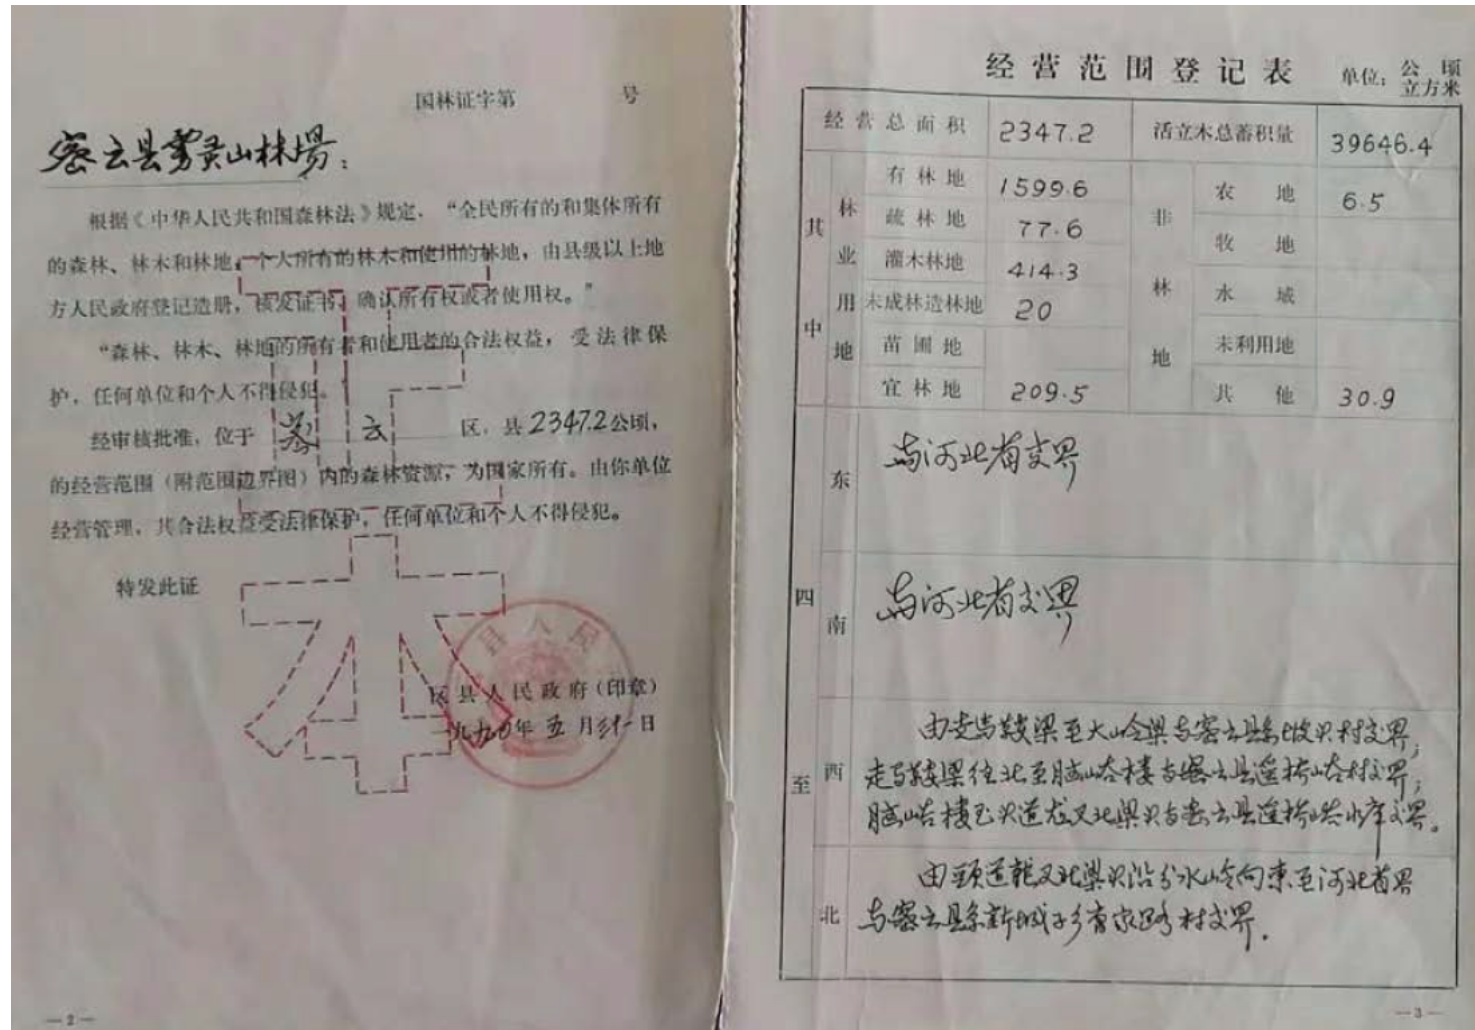 国林证字第 号
密云县雾灵山林場：
根据《中华人民共和国森林法》规定，“全民所有的和集体所有
的森林、林木和林地，个人所有的林木和使用的林地，由县级以上地
方人民政府登记造册，核发证书，确认所有权或者使用权。”
“森林、林木、林地的所有者和使用者的合法权益，受法律保
护，任何单位和个人不得侵犯。
经审核批准，位于 密云 区、县2347.2公顷，
的经营范围（附范围边界图）内的森林资源，为国家所有。由你单位
经营管理，其合法权益受法律保护，任何单位和个人不得侵犯。
特发此证
县人民
区县人民政府（印章）
一九九〇年五月 日
—2—
经营范围登记表
单位：公顷
立方米
经营总面积 2347.2 活立木总蓄积量 39646.4
其中
林业用地
有林地 1599.6
疏林地 77.6
灌木林地 414.3
未成林造林地 20
苗圃地
宜林地 209.5
非林地
农地 6.5
牧地
水域
未利用地
其他 30.9
四至
东 与河北省交界
南 与河北省交界
西 由走马鞍梁至大岭梁与密云县 村交界；
走马鞍梁往北至 峪楼与密云县遥桥峪村交界；
峪楼至头道 北梁头与密云县遥桥峪水库交界。
北 由头道 北梁头沿分水岭向东至河北省界
与密云县新城子乡 村交界。
—3—